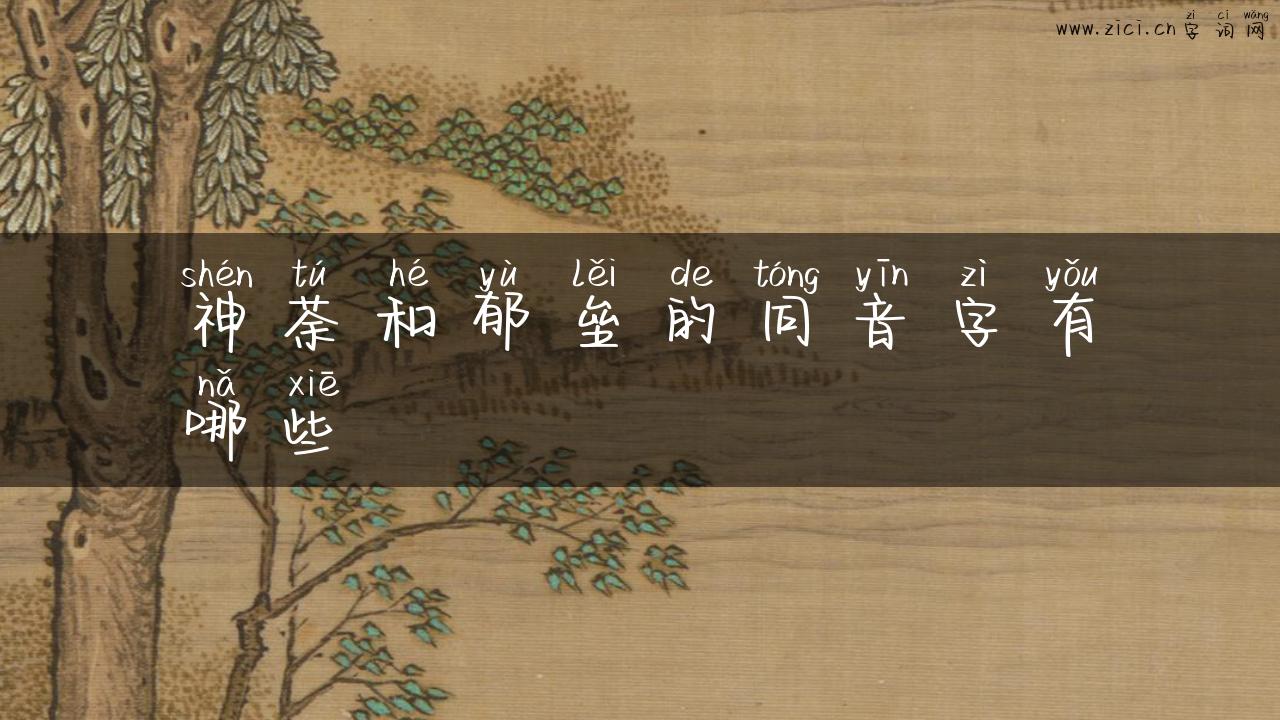 zì cí wǎng
www.zici.cn 字词网
shén tú hé yù lěi de tóng yīn zì yǒu
神荼和郁垒的同音字有
nǎ xiē
哪些